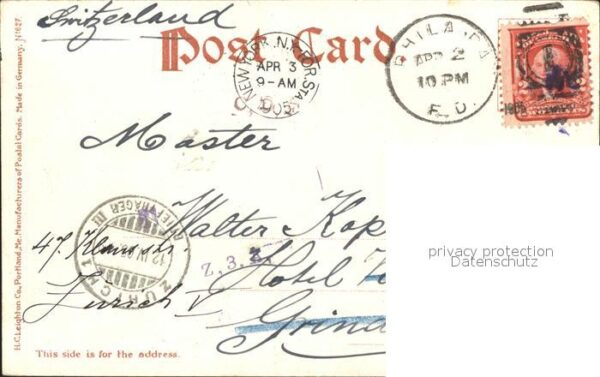 Switzerland
Post Card.
NEW YORK, N.Y.
APR 3
9-AM
1905
PHILA. PA.
APR 2
10 PM
Master
Walter
47. Klausstr.
Z, 3.
Hotel
Zurich V
ZÜRICH
BRIEFTRÄGER III
12 IV
This side is for the address.
H.C. Leighton Co., Portland, Me. Manufacturers of Postal Cards. Made in Germany. N1627.
privacy protection
Datenschutz